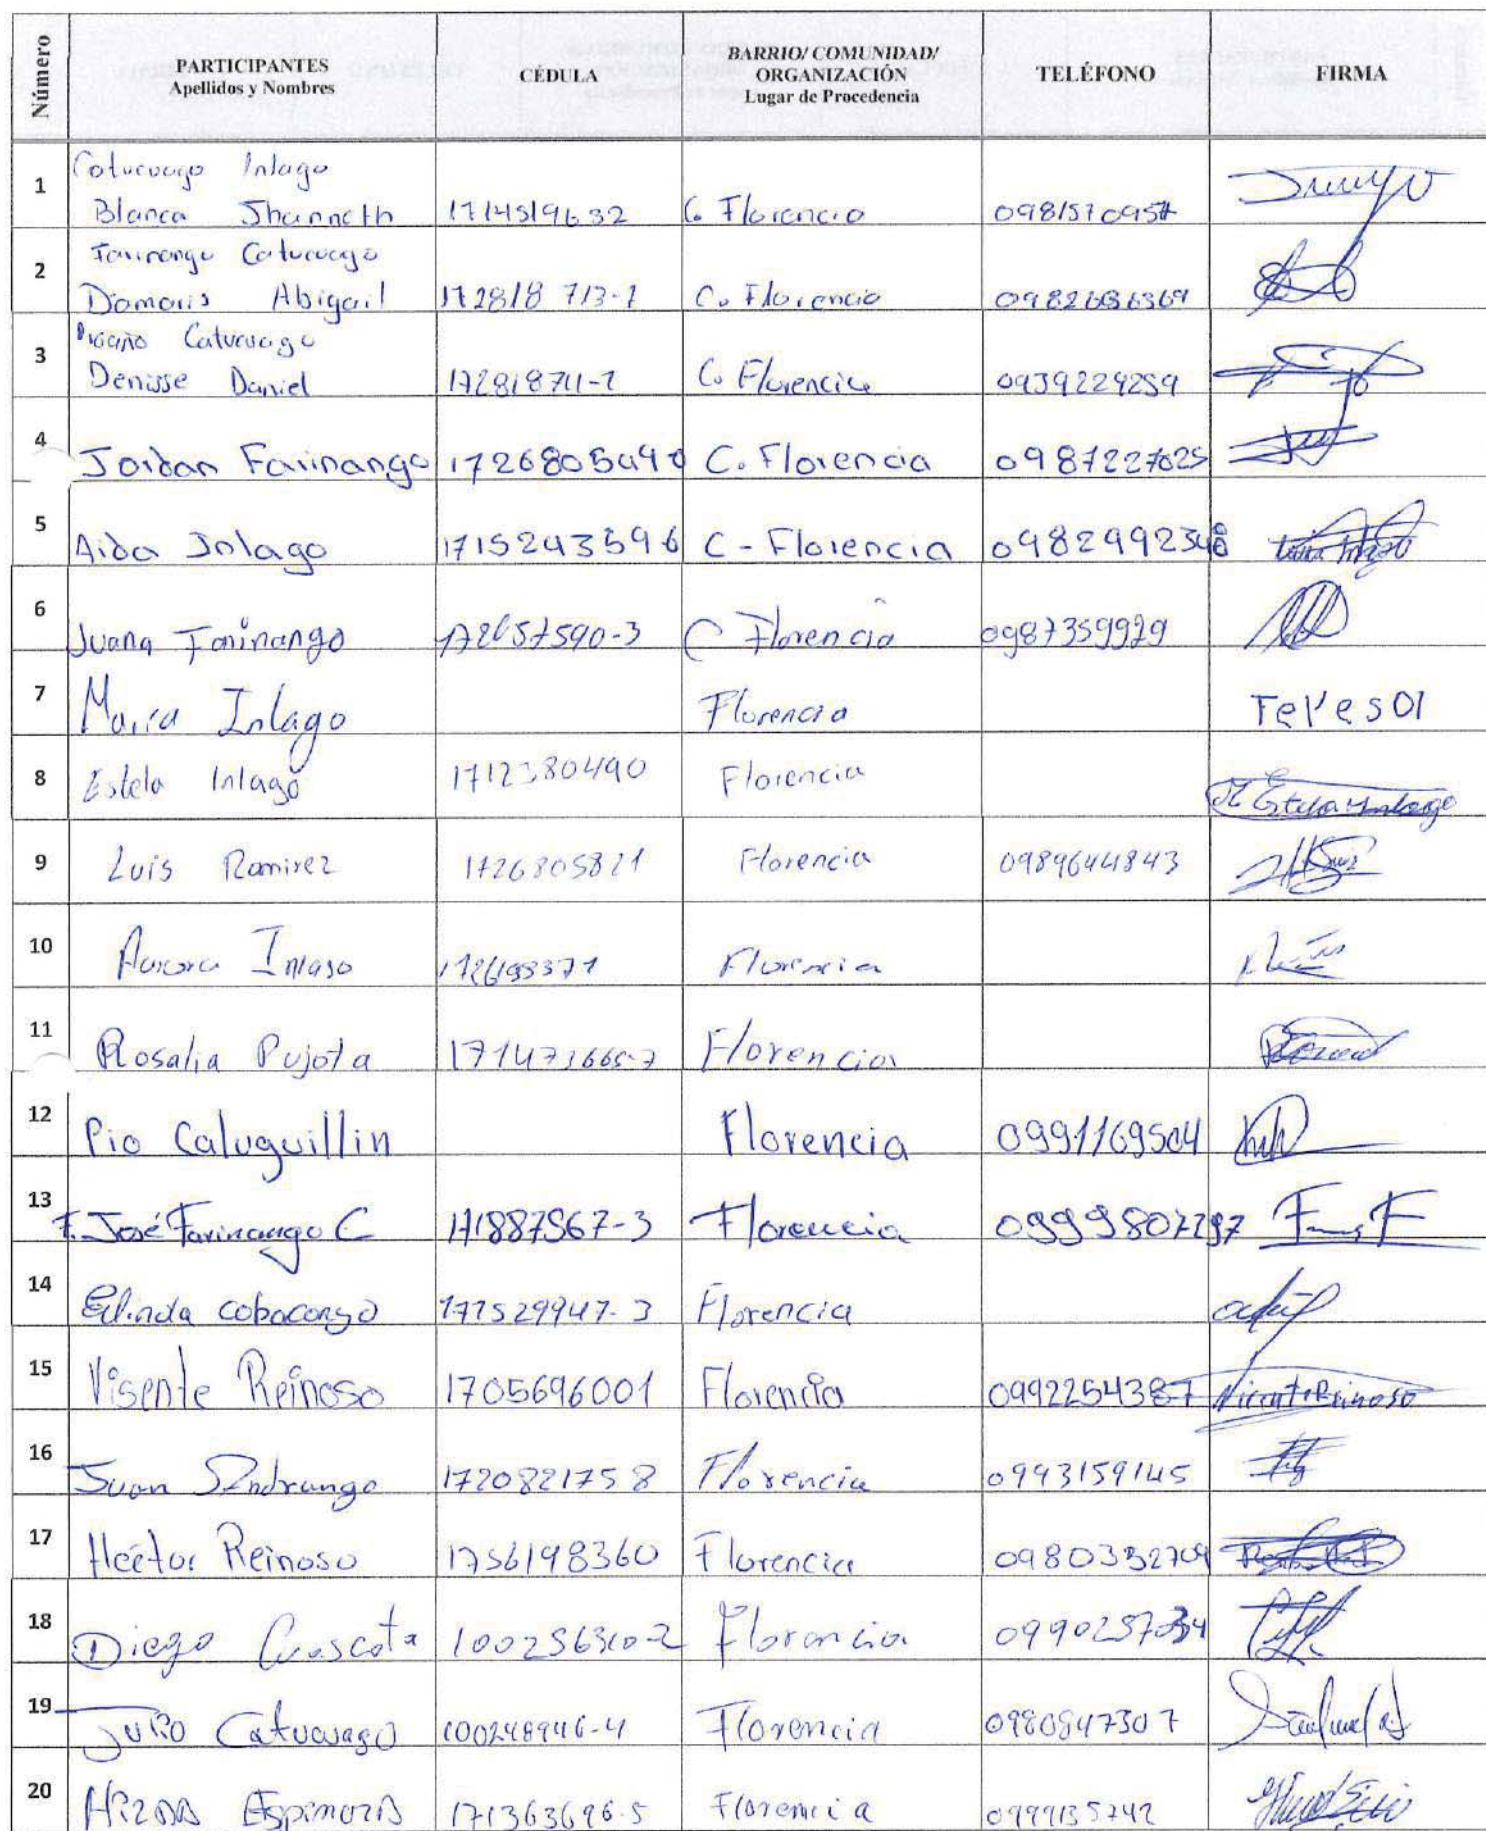 Número
PARTICIPANTES
Apellidos y Nombres
CÉDULA
BARRIO/ COMUNIDAD/
ORGANIZACIÓN
Lugar de Procedencia
TELÉFONO
FIRMA
1
Catucuago Inlago
Blanca Jhanneth 1714519632 C. Florencia
2
Farinango Catucuago
Damaris Abigail 172818713-1 C. Florencia
3
Catucuago
Denisse Daniel 172818711-1 C. Florencia 0939229259
4 Jordan Farinango C. Florencia 0987227025
5 Aida Inlago 1715243596 C - Florencia
6 Juana Farinango C Florencia 0987359929
7 Maria Inlago Florencia
8 Estela Inlago 1712380490 Florencia
9 Luis Ramirez 1726805821 Florencia 0989644843
10 Aurora Inlago Florencia
11 Rosalia Pujota 171473665-7 Florencia
12 Pio Caluguillin Florencia 0991169504
13 F. José Farinango C 171887567-3 Florencia 0999807297
14 Florencia
15 Visente Reinoso 1705696001 Florencia 0992254387 Vicente Reinoso
16 Juan Andrango 1720821758 Florencia 0993159145
17 Héctor Reinoso 1756198360 Florencia 0980332709
18 Diego Cuascota 100256310-2 Florencia
19 Julio Catucuago 100248946-4 Florencia 0980847307
20 Espinoza 171363696-5 Florencia 0999135742